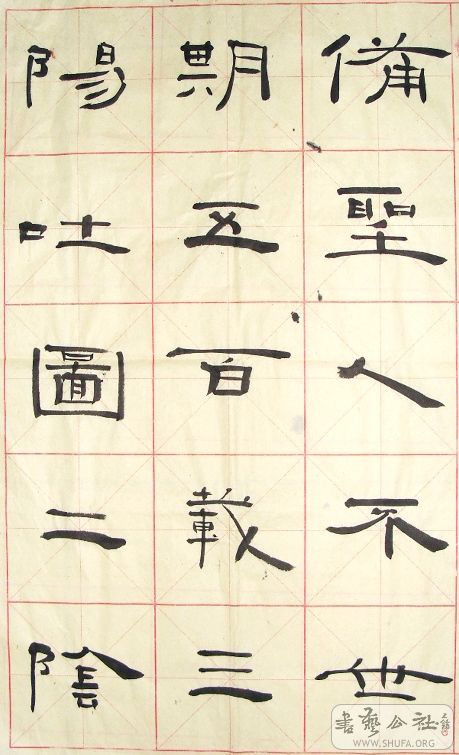 備聖人不世
期五百載三
陽吐圖二陰
書藝公社
WWW.SHUFA.ORG